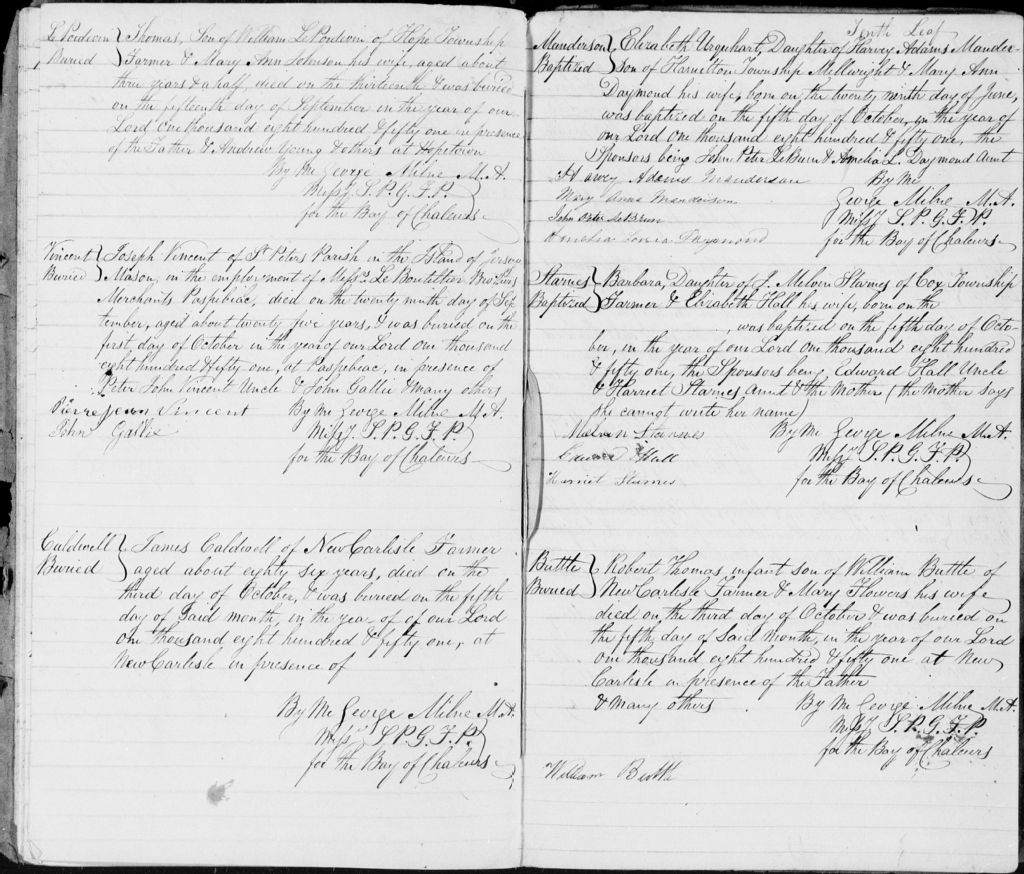 Le Poidevin } Thomas, Son of William Le Poidevin of Hope Township
Buried } Farmer & Mary Ann Johnson his wife, aged about
three years & a half, died on the thirteenth & was buried
on the fifteenth day of September in the year of our
Lord one thousand eight hundred & fifty one in presence
of the Father & Andrew Young & others at Hopetown
By Me George Milne M.A.
Missy. S.P.G.F.P.
for the Bay of Chaleurs
Vincent } Joseph Vincent of St Peters Parish in the Island of Jersey
Buried } Mason, in the employment of Messrs Le Boutellier Brothers
Merchants Paspebiac, died on the twenty ninth day of Sep
tember, aged about twenty five years, & was buried on the
first day of October in the year of our Lord one thousand
eight hundred & fifty one, at Paspebiac, in presence of
Peter John Vincent Uncle & John Gallie & many others
Pierre Jean Vincent By Me George Milne M.A.
John Gallie Missy. S.P.G.F.P.
for the Bay of Chaleurs
Caldwell } James Caldwell of New Carlisle Farmer
Buried } aged about eighty six years, died on the
third day of October, & was buried on the fifth
day of Said month, in the year of of our Lord
one thousand eight hundred & fifty one, at
New Carlisle in presence of
By Me George Milne M.A.
Missy. S.P.G.F.P.
for the Bay of Chaleurs
Tenth Leaf
Manderson } Elizabeth Urquhart, Daughter of Harvey Adams Mander
Baptized } Son of Hamilton Township Millwright & Mary Ann
Daymond his wife, born on the twenty ninth day of June,
was baptized on the fifth day of October, in the year of
our Lord one thousand eight hundred & fifty one, the
Sponsors being John Peter LeBrun & Amelia L. Daymond Aunt
Harvey Adams Manderson By Me
Mary Anna Manderson George Milne M.A.
John Peter LeBrun Missy. S.P.G.F.P.
Amelia Louisa Daymond for the Bay of Chaleurs
Starnes } Barbara, Daughter of J. Melvin Starnes of Cox Township
Baptized } Farmer & Elizabeth Hall his wife, born on the
, was baptized on the fifth day of Octo-
ber, in the year of our Lord one thousand eight hundred
& fifty one, the Sponsors being Edward Hall Uncle
& Harriet Starnes Aunt & the Mother (the Mother says
she cannot write her name)
Melvin Starnes By Me George Milne M.A.
Edward Hall Missy. S.P.G.F.P.
Harriet Starnes for the Bay of Chaleurs
Buttle } Robert Thomas, infant son of William Buttle of
Buried } New Carlisle Farmer & Mary Flowers his wife
died on the third day of October & was buried on
the fifth day of Said Month, in the year of our Lord
one thousand eight hundred & fifty one at New
Carlisle in presence of the Father
& many others By Me George Milne M.A.
Missy. S.P.G.F.P.
for the Bay of Chaleurs
William Buttle